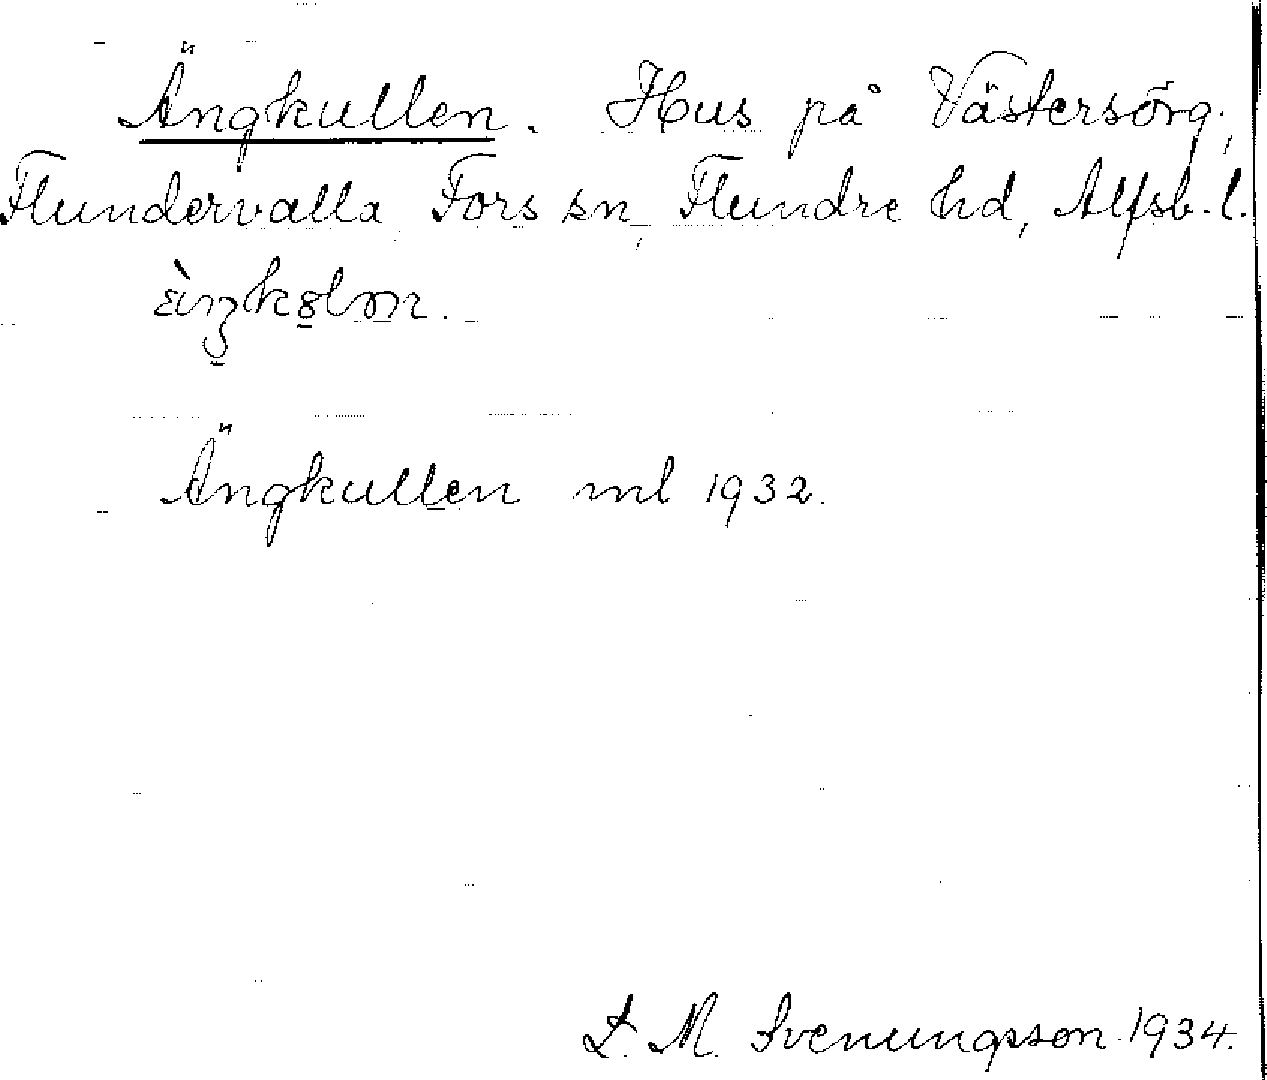 Ängkullen. Hus på Västersörg.,
Flundervalla Fors sn, Flundre hd, Älfsb. l.
Ängkullen ml 1932.
S. M. Svenungsson 1934.